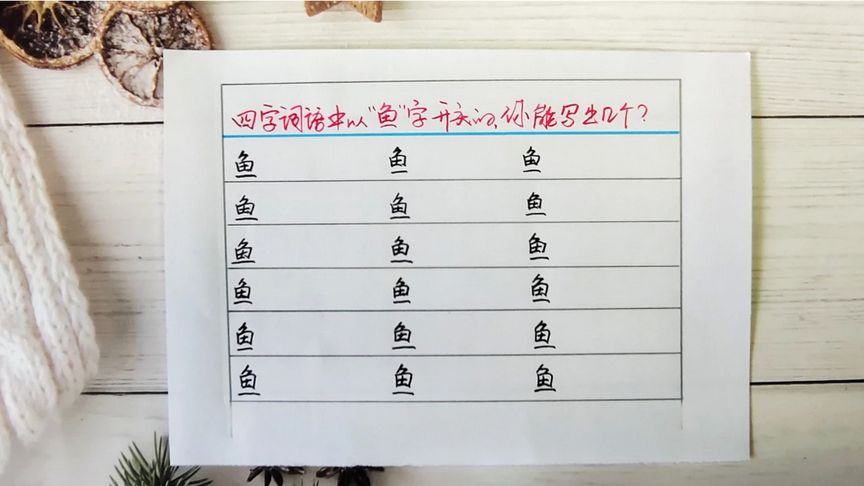 四字词语中以“鱼”字开头的,你能写出几个?
鱼 鱼 鱼
鱼 鱼 鱼
鱼 鱼 鱼
鱼 鱼 鱼
鱼 鱼 鱼
鱼 鱼 鱼